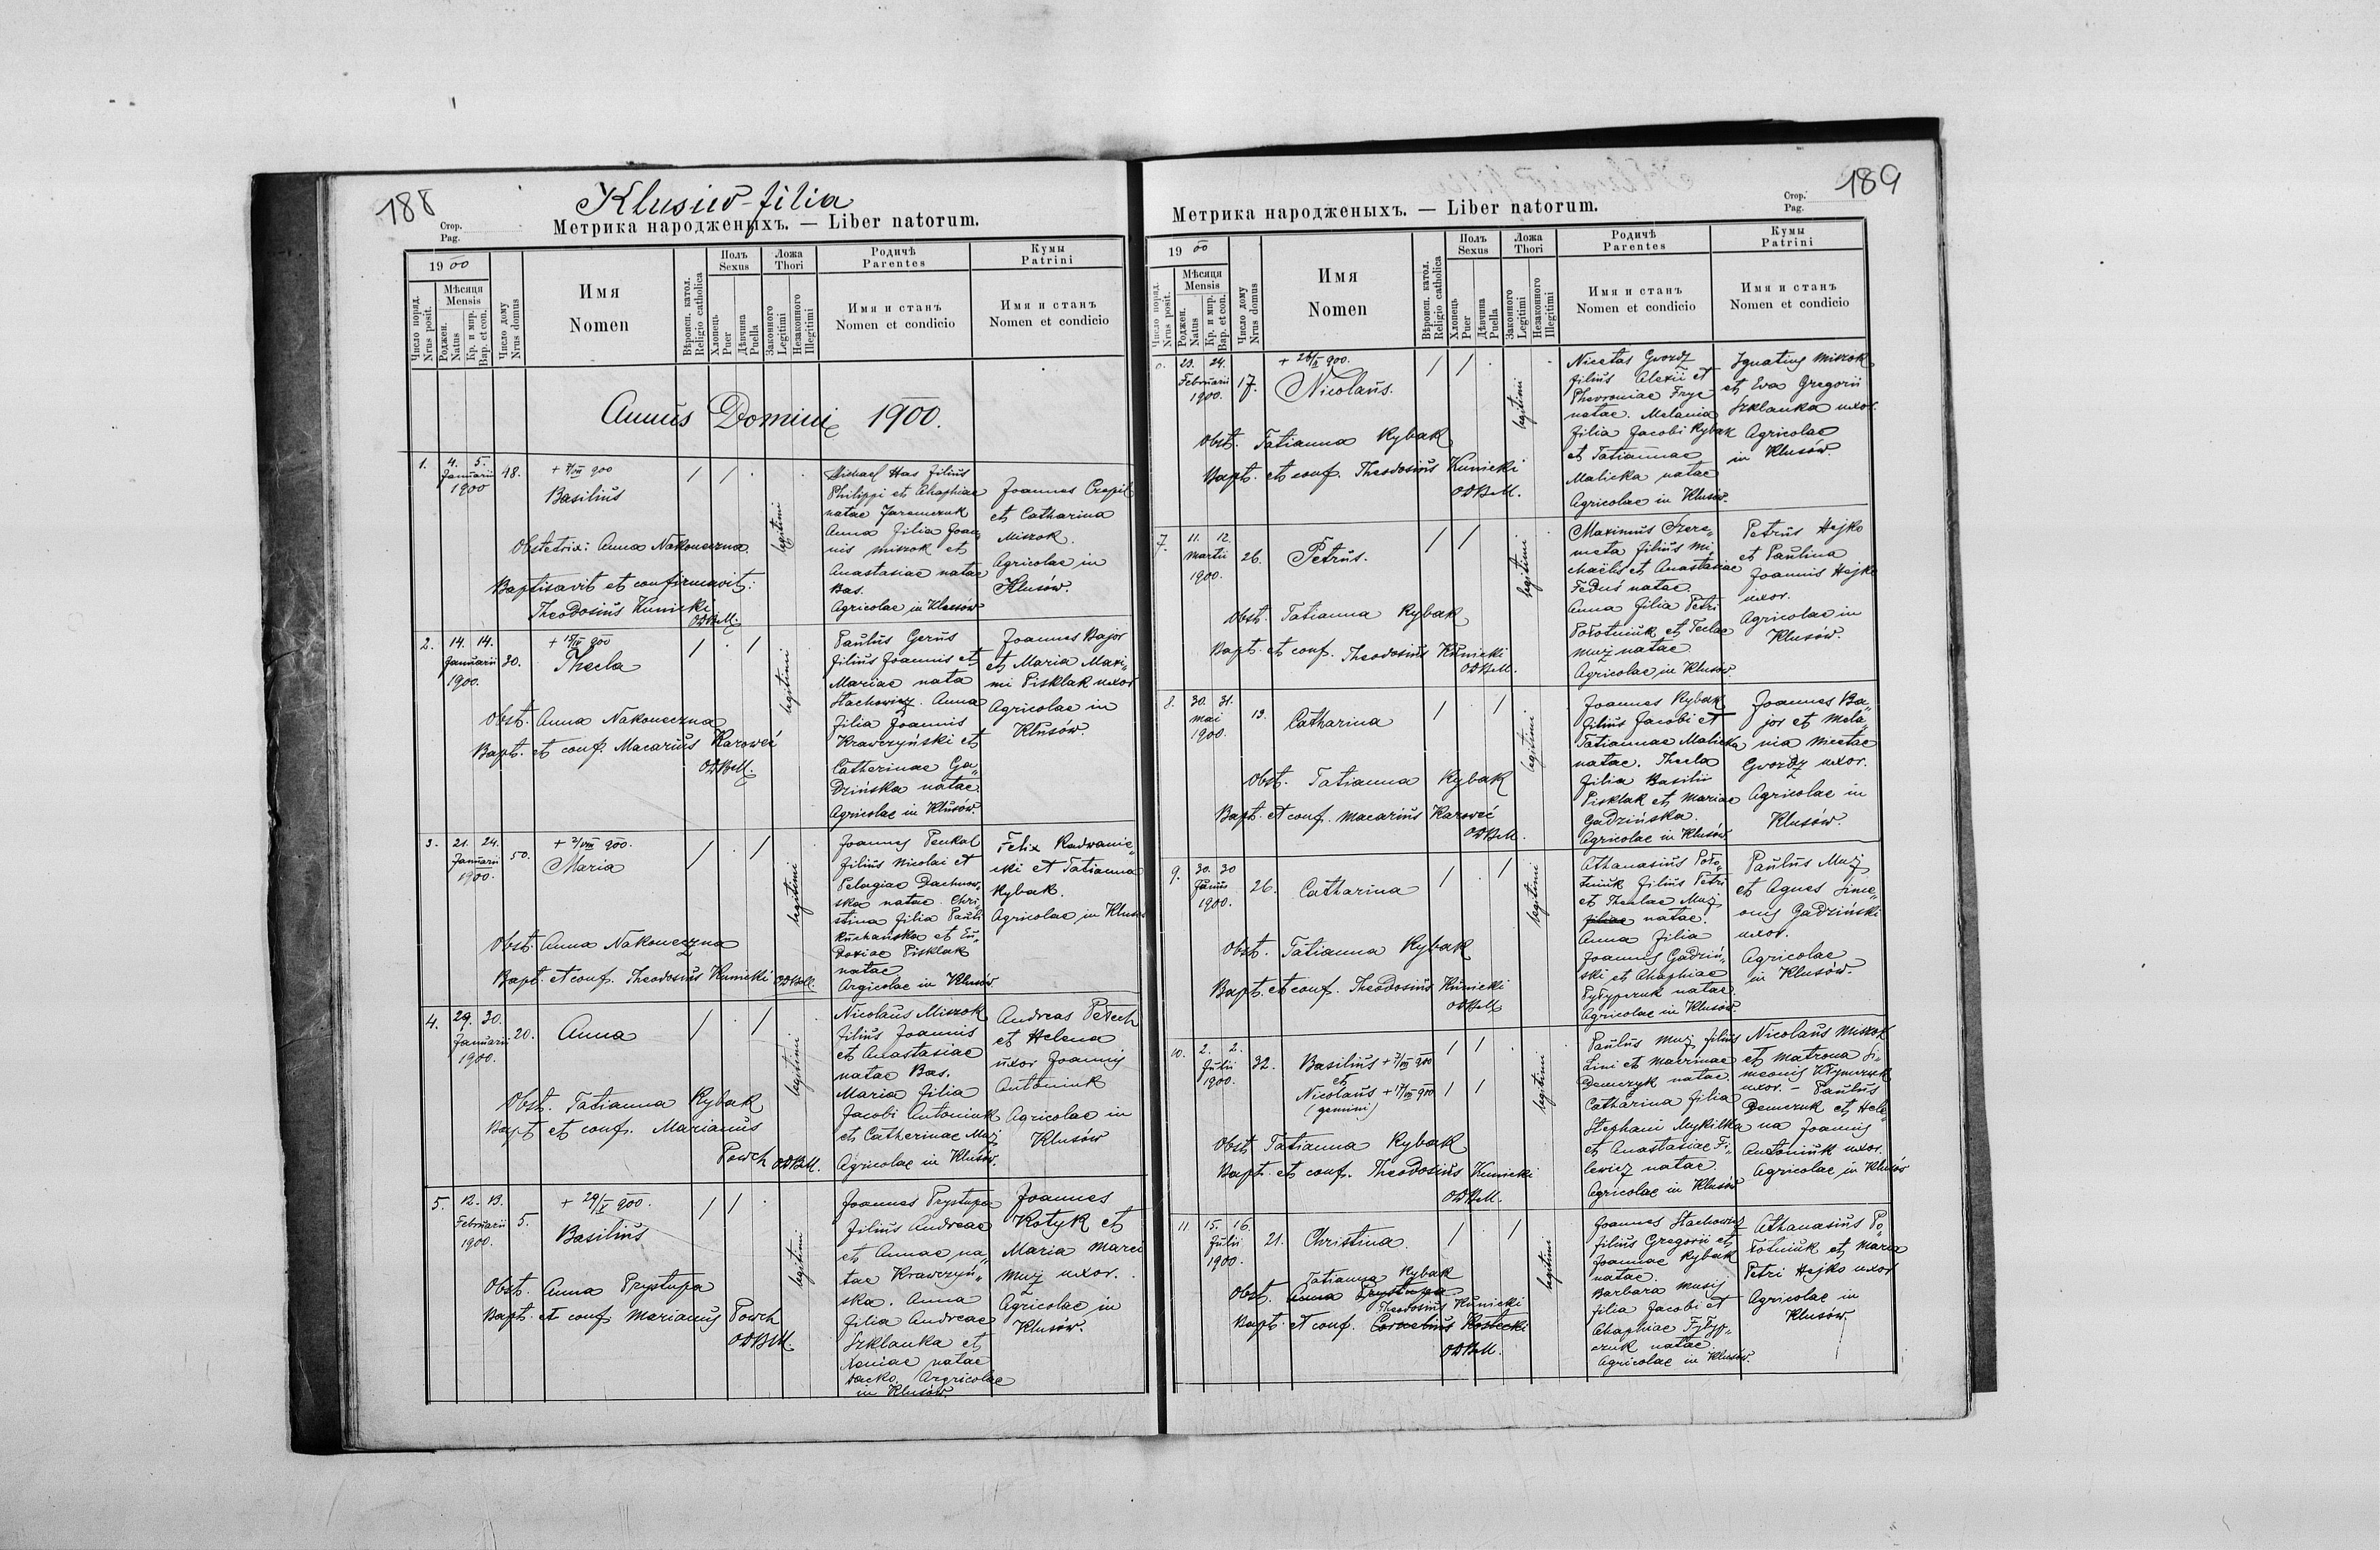 188
Klusiw-filia
Стор.
Pag.
Метрика народженыхъ. — Liber natorum.
1900
Число поряд.
Nrus posit.
Мѣсяця
Mensis
Роджен.
Natus
Кр. и мир.
Bap. et con.
Число дому
Nrus domus
Имя
Nomen
Вѣроисп. катол.
Religio catholica
Полъ
Sexus
Хлопець
Puer
Дѣвчина
Puella
Ложа
Thori
Законного
Legitimi
Незаконного
Illegitimi
Родичѣ
Parentes
Имя и станъ
Nomen et condicio
Кумы
Patrini
Имя и станъ
Nomen et condicio
Annus Domini 1900.
1. 4. 5. Januarii 1900 48.
Basilius
Obstetrix: Anna Nakoneczna
Baptisavit et confirmavit:
Theodosius Kunicki
OSBM.
legitimi
Michael Has filius
Philippi et Ahaphiae
natae Jaremczuk
Anna filia Joan
nis Miszok et
Anastasiae natae
Bas.
Agricolae in Klusów
Joannes Czepil
et Catharina
Miszok.
Agricolae in
Klusów.
2. 14. 14. Januarii 1900. 30.
Thecla
Obst. Anna Nakoneczna
Bapt. et conf. Macarius Karoweć
OSBM.
legitimi
Paulus Gerus
filius Joannis et
Mariae nata
Stachowicz. Anna
filia Joannis
Krawczyński et
Catherinae Ga„
dzińska natae.
Agricolae in Klusów.
Joannes Bajor
et Maria Maxi„
mi Pisklak uxor
Agricolae in
Klusów.
3. 21. 24. Januarii 1900. 50.
+ 2/VIII 900.
Maria
Obst. Anna Nakoneczna
Bapt. et conf. Theodosius Kunicki OSBM.
legitimi
Joannes Penkal
filius Nicolai et
Pelagiae Dachnow„
ska natae. Chri„
stina filia Pauli
Kuchańska et Eu„
doxiae Pisklak
natae
Argicolae in Klusów
Felix Radwanie„
cki et Tatianna
Rybak.
Agricolae in Klusów
4. 29. 30. Januarii 1900. 20.
Anna
Obst. Tatianna Rybak
Bapt et conf. Marianus
Powch OSBM.
legitimi
Nicolaus Miszok
filius Joannis
et Anastasiae
natae Bas.
Maria filia
Jacobi Antoniuk
et Catherinae Muz
Agricolae in Klusów.
Andreas Petech
et Helena
uxor Joannis
Antoniuk
Agricolae in
Klusów
5. 12. 13. Februarii 1900. 5.
+ 29/V 900.
Basilius
Obst. Anna Prystupa
Bapt. et conf Marianus Powch
OSBM.
legitimi
Joannes Prystupa
filius Andreae
et Annae na„
tae Krawczyń„
ska. Anna
filia Andreae
Szklanka et
Xeniae natae
Agricolae
in Klusów.
Joannes
Kotyk et
Maria Marci
Muz uxor.
Agricolae in
Klusów.
189
Стор.
Pag.
Метрика народженыхъ. — Liber natorum.
1900
Число поряд.
Nrus posit.
Мѣсяця
Mensis
Роджен.
Natus
Кр. и мир.
Bap. et con.
Число дому
Nrus domus
Имя
Nomen
Вѣроисп. катол.
Religio catholica
Полъ
Sexus
Хлопець
Puer
Дѣвчина
Puella
Ложа
Thori
Законного
Legitimi
Незаконного
Illegitimi
Родичѣ
Parentes
Имя и станъ
Nomen et condicio
Кумы
Patrini
Имя и станъ
Nomen et condicio
23. 24. Februarii 1900. 17.
Nicolaus.
Obst. Tatianna Rybak
Bapt. et conf. Theodosius Kunicki
OSBM.
legitimi
Nicetas Gwozdz
filius Alexii et
Phevroniae Fryc
natae. Melania
filia Jacobi Rybak
et Tatiannae
Malicka natae
Agricolae in Klusów.
Ignatius Miszok
et Eva Gregorii
Szklanka uxor.
Agricolae
in Klusów
7. 11. 12. Martii 1900. 26.
Petrus.
Obst. Tatianna Rybak
Bapt. et conf. Theodosius Kunicki
OSBM.
legitimi
Maximus Szere„
meta filius Mi„
chaëlis et Anastasiae
Feduś natae.
Anna filia Petri
Połotniuk et Teclae
Muz natae
Agricolae in Klusów.
Petrus Hejko
et Paulina
Joannis Hejko
uxor.
Agricolae in
Klusów.
8. 30. 31. Mai 1900. 13.
Catharina
Obst. Tatianna Rybak
Bapt. et conf. Macarius Karoweć
OSBM.
legitimi
Joannes Rybak
filius Jacobi et
Tatiannae Malicka
natae. Thecla
filia Basilii
Pisklak et Mariae
Gadzińska.
Agricolae in Klusów
Joannes Ba„
jor et Mela„
nia Nicetae
Gwozdz uxor.
Agricolae in
Klusów.
9. 30. 30 Junii 1900. 26.
Catharina
Obst. Tatianna Rybak
Bapt. et conf. Theodosius Kunicki
OSBM
legitimi
Athanasius Poło„
tniuk filius Petri
et Theclae Muz
filiae natae.
Anna filia
Joannis Gadziń„
ski et Ahaphiae
Pyłypczuk natae
Agricolae in Klusów.
Paulus Muz
et Agnes Sime„
onis Gadziński
uxor.
Agricolae
in Klusów.
10. 2. 2. Julii 1900. 32.
Basilius
et
Nicolaus
(gemini)
Obst. Tatianna Rybak
Bapt. et conf. Theodosius Kunicki
OSBM.
legitimi
Paulus Muz filius
Lini et Matrinae
Demczyk natae.
Catharina filia
Stephani Mykitka
et Anastasiae Fi„
lewicz natae.
Agricolae in Klusów
Nicolaus Miszok
et Matrona Si„
meonis Klymczuk
uxor. – Paulus
Demczuk et Hele„
na Joannis
Antoniuk uxor.
Agricolae in Klusów
11 15. 16. Julii 1900. 21.
Christina.
Tatianna Rybak
Obst. Anna Prystupa
Theodosius Kunicki
Bapt. et conf. Cornelius Kostecki
OSBM.
legitimi
Joannes Stachowicz
filius Gregorii et
Joannae Rybak
natae.
Barbara Musij
filia Jacobi et
Ahaphiae Pyłyp„
czuk natae
Agricolae in Klusów.
Athanasius Po„
łotniuk et Maria
Petri Hejko uxor
Agricolae in
Klusów.